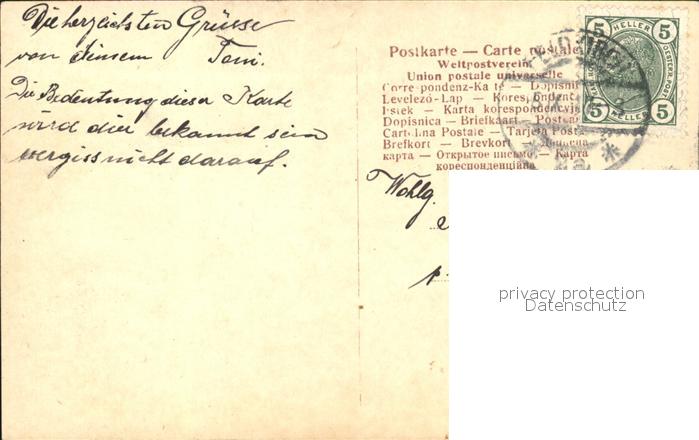 Die herzlichsten Grüsse
von Deinem Toni.
Die Bedeutung dieser Karte
wird dir bekannt sein
vergiss nicht darauf.
Postkarte — Carte postale
Weltpostverein
Union postale universelle
Correspondenz-Karte — Dopisnice
Levelező-Lap — Korespondenčn
Listek — Karta korespondencyjna
Dopisnica — Briefkaart — Postcard
Cartolina Postale — Tarjeta Posta
Brefkort — Brevkort —
карта — Открытое письмо — Карта
кореспонденційна
5 HELLER 5
OESTERR. POST
5 HELLER 5
Wohlg.
privacy protection
Datenschutz